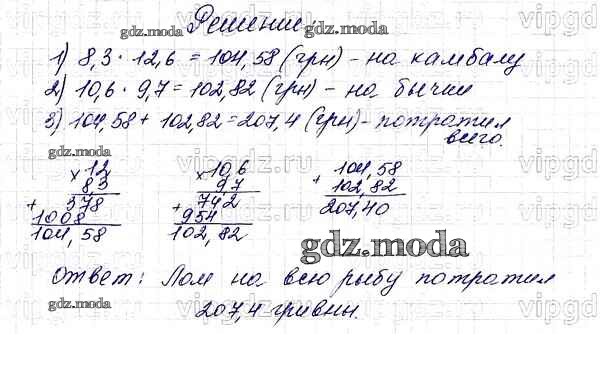 Решение:
1) 8,3 · 12,6 = 104,58 (грн) - на камбалу
2) 10,6 · 9,7 = 102,82 (грн) - на бычки
3) 104,58 + 102,82 = 207,4 (грн) - потратил
всего.
× 12
8,3
+ 378
1008
104,58
× 10,6
9,7
+ 742
954
102,82
+ 104,58
102,82
207,40
Ответ: Лом на всю рыбу потратил
207,4 гривны.
gdz.moda
gdz.moda
gdz.moda
gdz.moda
gdz.moda
gdz.moda
vipgdz.ru